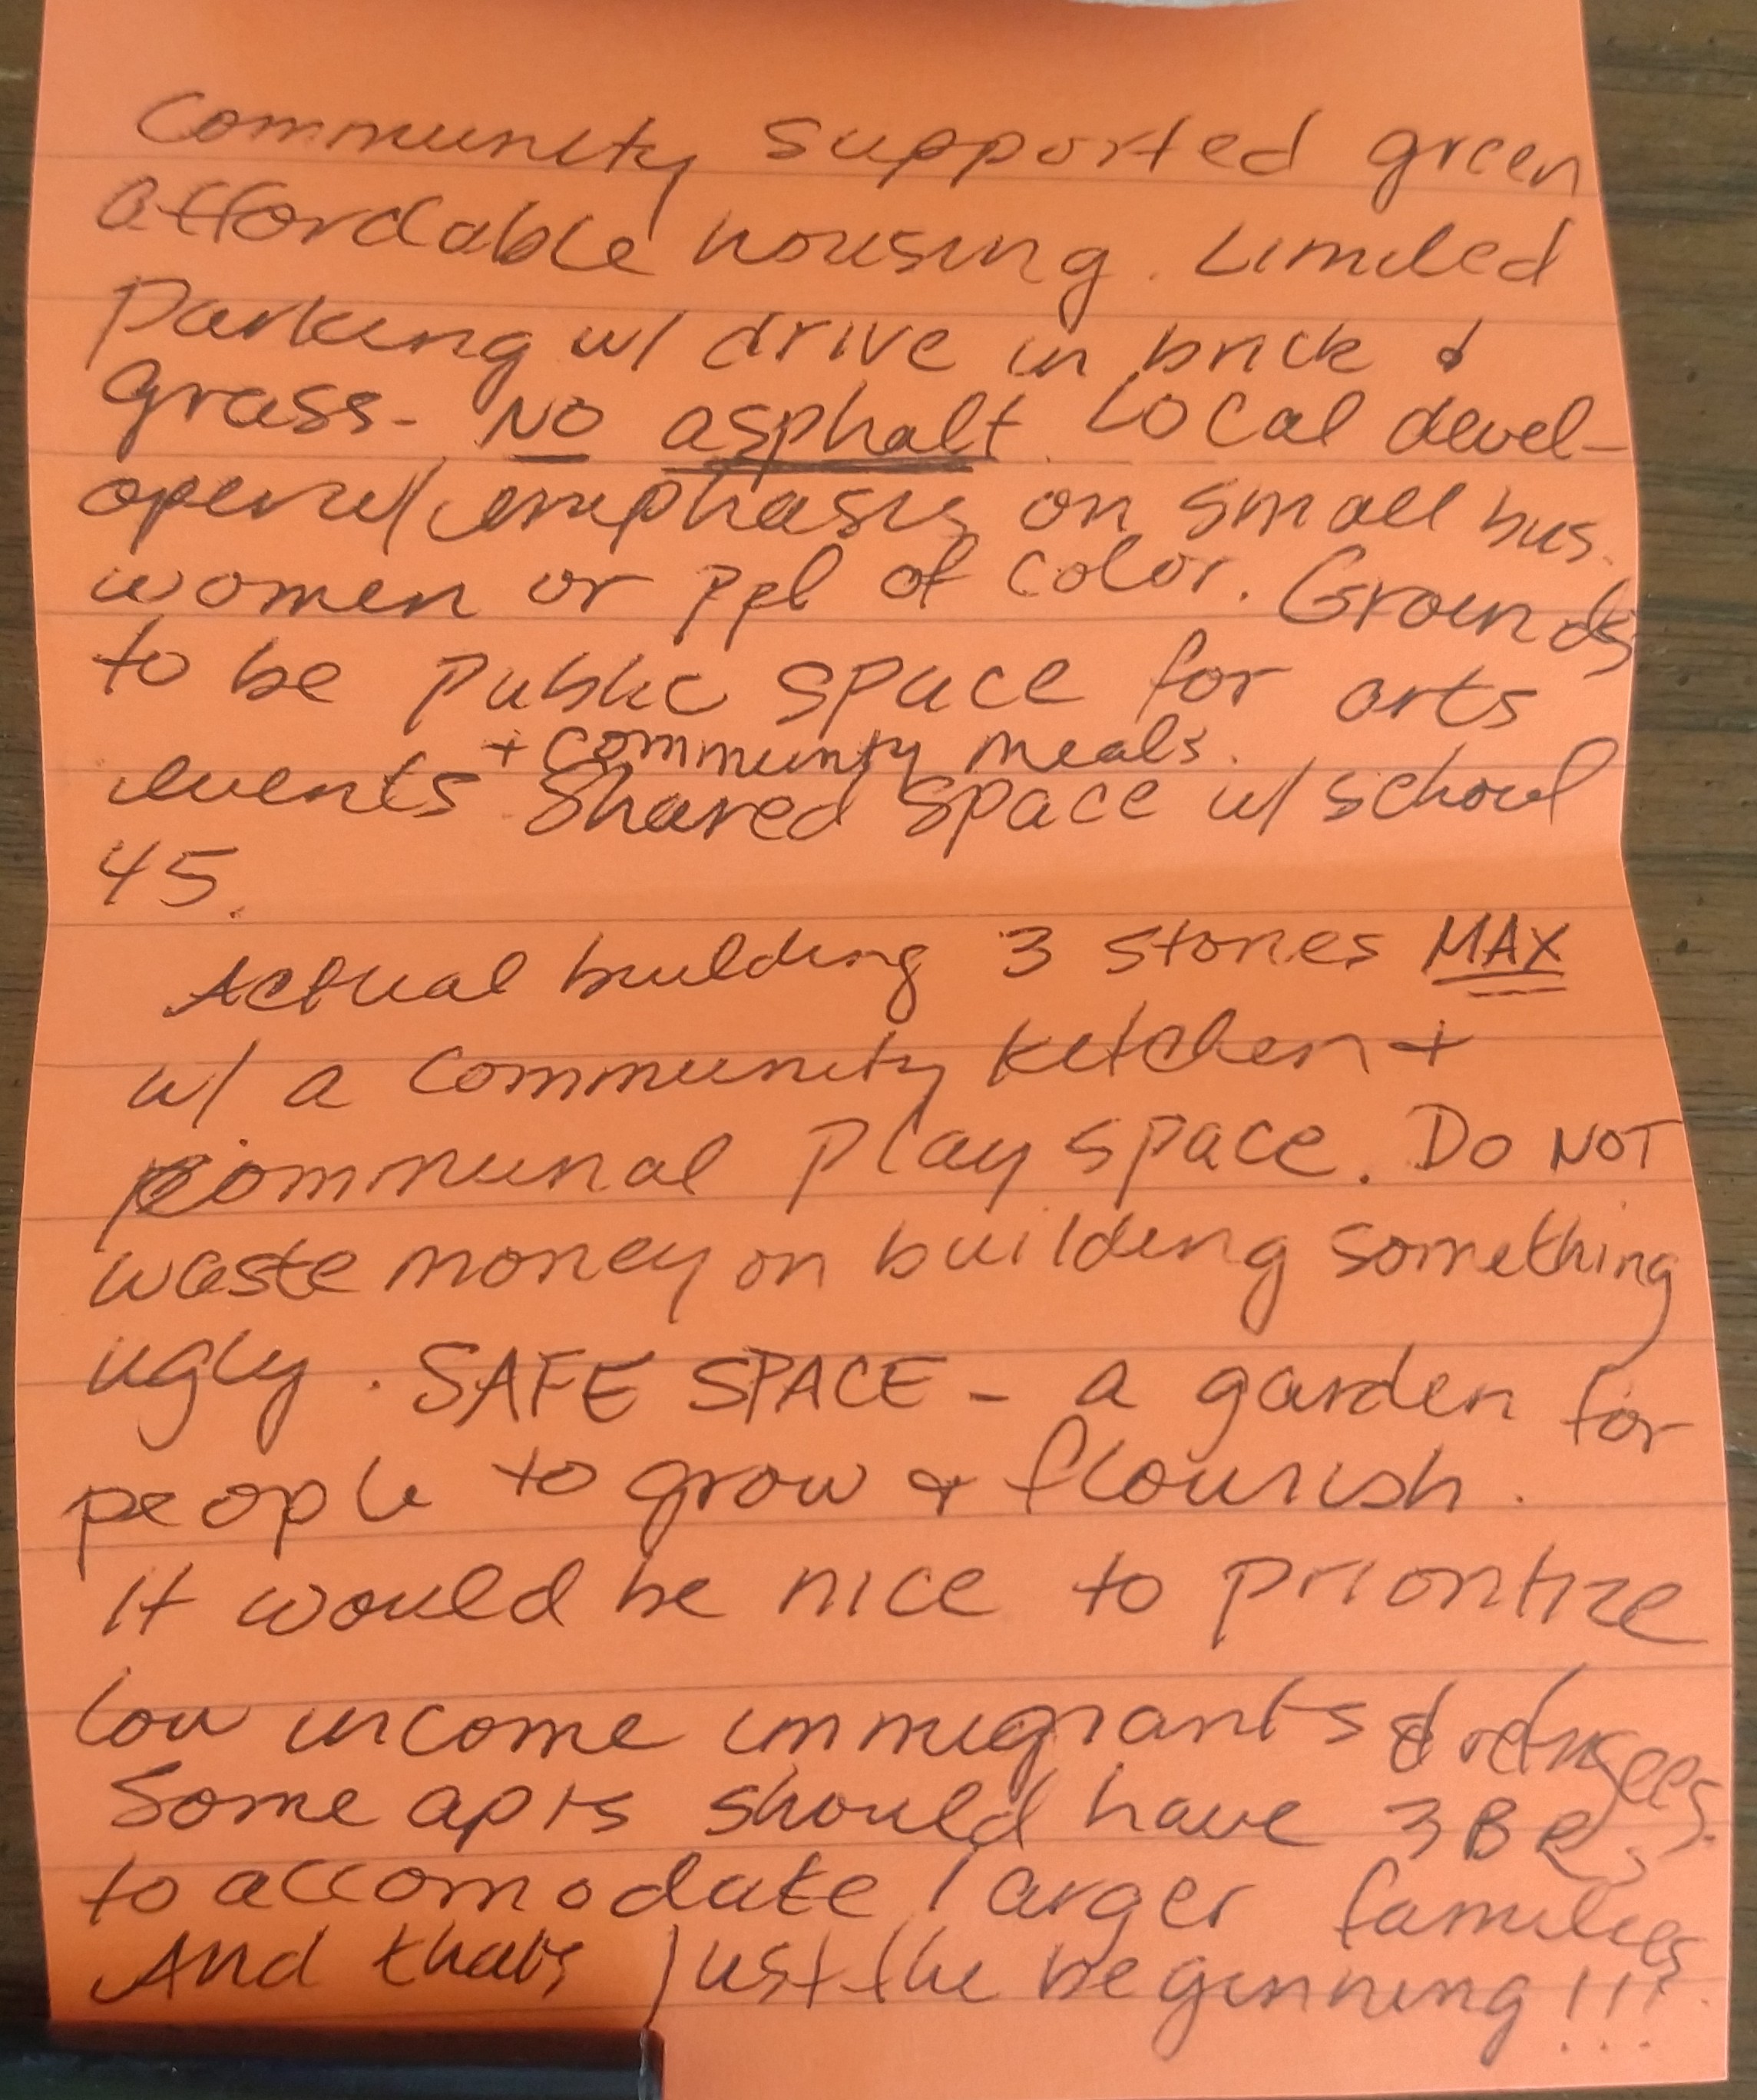 Community supported green
affordable housing. Limited
Parking w/ drive in brick &
grass - NO asphalt. Local devel-
oper w/ emphasis on small bus.
women or ppl of color. Grounds
to be public space for arts
events + community meals.
Shared space w/ school
45.
Actual building 3 stories MAX
w/ a community kitchen +
communal play space. Do NOT
waste money on building something
ugly. SAFE SPACE - a garden for
people to grow & flourish.
It would be nice to prioritize
low income immigrants & refugees.
Some apts should have 3 BRs
to accomodate larger families
And that's just the beginning!!!